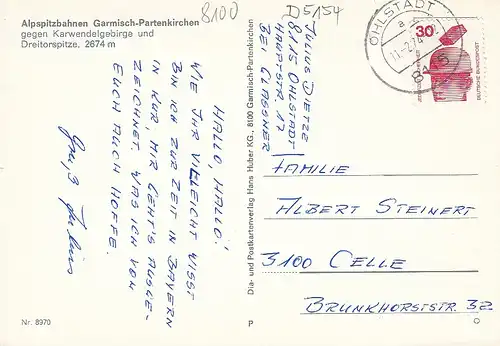 Alpspitzbahnen Garmisch-Partenkirchen
gegen Karwendelgebirge und
Dreitorspitze, 2674 m
8100
D5154
HALLO, HALLO!
WIE IHR VIELLEICHT WISST
BIN ICH ZUR ZEIT IN BAYERN
IN KUR, MIR GEHT'S AUSGE-
ZEICHNET. WAS ICH VON
EUCH AUCH HOFFE.
Gruß Julius
Nr. 8970
Dia- und Postkartenverlag Hans Huber KG., 8100 Garmisch-Partenkirchen
P
JULIUS DIETZE
8115 OHLSTADT
HAUPTSTR. 17
BEI GLASSNER
OHLSTADT
a
8115
30
DEUTSCHE BUNDESPOST
FAMILIE
ALBERT STEINERT
3100 CELLE
BRUNKHORSTSTR. 32